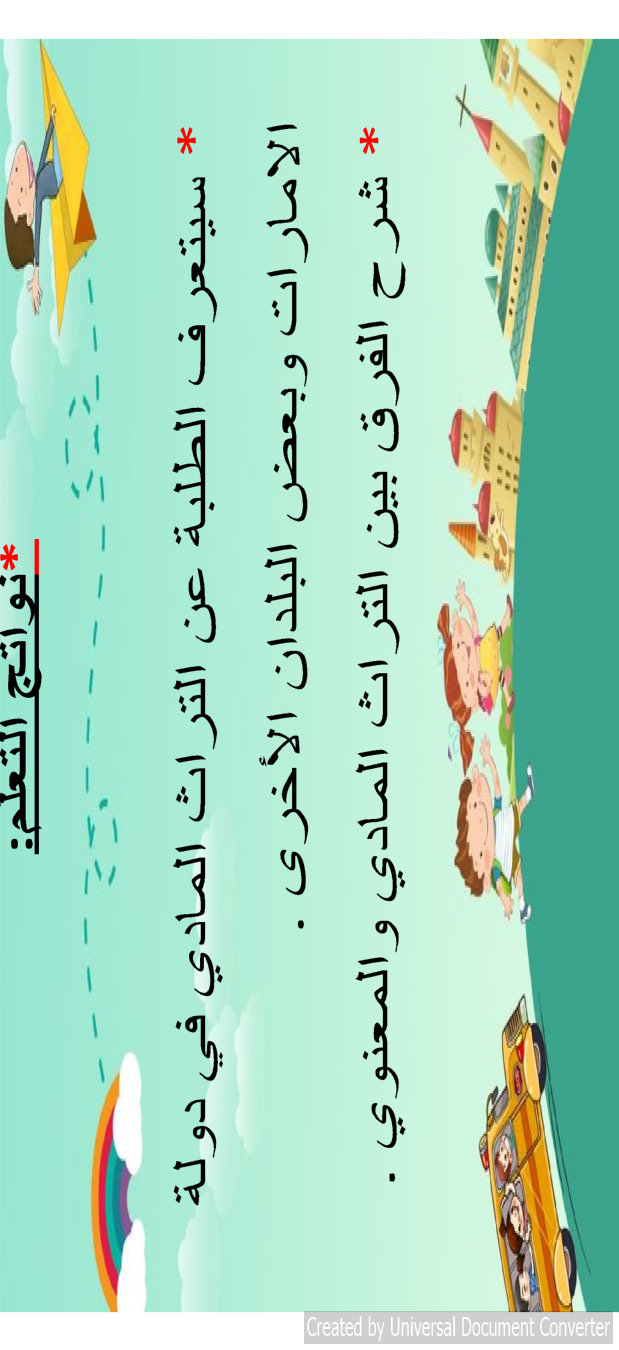 *نواتج التعلم:
* سيتعرف الطلبة عن التراث المادي في دولة
الامارات وبعض البلدان الأخرى .
* شرح الفرق بين التراث المادي والمعنوي .
Created by Universal Document Converter